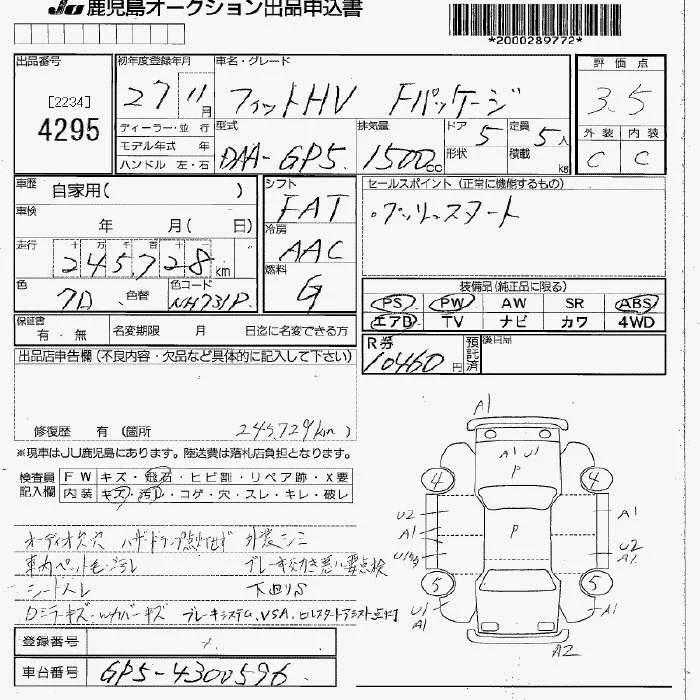 JU 鹿児島オークション出品申込書
*2000289772*
出品番号
[2234]
4295
初年度登録年月
27 11月
ディーラー・並 行
モデル年式 年
ハンドル 左・右
車名・グレード
フィットHV Fパッケージ
型式
DAA-GP5
排気量
1500cc
ドア 5
形状
定員 5人
積載 kg
評価点
3.5
外装 内装
C C
車歴 自家用( )
車検 年 月( 日)
走行 十 万 千 百 十
245,728 km
色 色替
色コード
NH731P
シフト
FAT
冷房
AAC
燃料
G
セールスポイント (正常に機能するもの)
・プッシュスタート
装備品(純正品に限る)
PS PW AW SR ABS
エアB TV ナビ カワ 4WD
保証書 有・無 名変期限 月 日迄に名変できる方
R券
10460円
預託済
後日局
出品店申告欄(不良内容・欠品など具体的に記入して下さい)
修復歴 有(箇所 245,729km)
※現車はJU鹿児島にあります。陸送費は落札店負担となります。
検査員記入欄
FW キズ・飛石・ヒビ割・リペア跡・X要
内装 キズ・汚れ・コゲ・穴・スレ・キレ・破レ
オーディオ欠穴 ハザードランプ点灯せず 外装シミ
車内ペット毛・ヨゴレ ブレーキ効き悪い要点検
シートスレ 下回りS
Dミラーキズ・Wカバーキズ ブレーキシステム、VSA、ヒルスタートアシスト点灯
A1
A1 U1
P
4 4
U2
A1
A1
P
U2
A1
5 5
U1
A1
U1
A1
A2
登録番号
車台番号 GP5-4300596